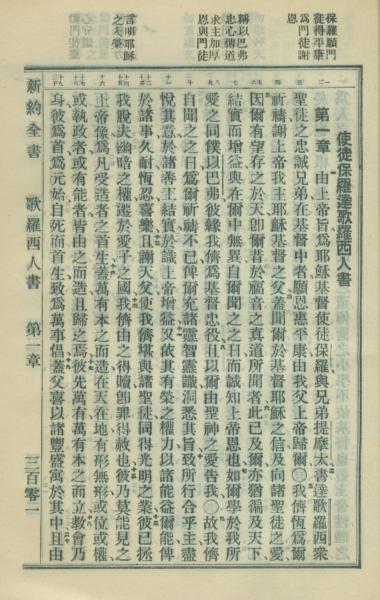 保羅願門
徒得平康
爲門徒謝
恩
稱以巴弗
忠心傳道
求主加厚
恩與門徒
言明耶穌
之大榮
使徒保羅達歌羅西人書
第一章 由上帝旨爲耶穌基督使徒保羅與兄弟提摩太書達歌羅西衆
聖徒之忠誠兄弟在基督中者願恩惠平康由我父上帝歸爾〇我儕恆爲爾
祈禱謝上帝我主耶穌基督之父蓋聞爾於基督耶穌之信及向諸聖徒之愛
因爾有望存之於天卽爾昔於福音之真道所聞者此已及爾亦猶徧及天下
結實而增益與在爾中無異自爾聞之之日而誠知上帝恩也如爾學於我所
愛之同僕以巴弗彼緣我儕爲基督忠役且以爾由聖神之愛告我〇故我儕
自聞之之日爲爾祈禱不已俾爾充諸靈智靈識洞悉其旨致所行合乎主盡
悅其意於諸善工結實於識上帝增益又依其有榮之權力以諸能益爾能俾
於諸事久耐恆忍喜樂且謝天父使我儕堪與諸聖徒同得光明之業彼已拯
我脫夫幽暗之權遷於愛子之國我儕由之得贖卽罪得赦也彼乃莫能見之
上帝像爲凡受造者之首生蓋萬有本之而造在天在地有形無形或位或權
或執政者或有能者皆由之而造且歸之焉彼先萬有萬有本之而立敎會乃
身彼爲首爲元始自死而首生致爲萬事倡蓋父喜以諸豐盛寓於其中且由
新約全書 歌羅西人書 第一章 三百零一